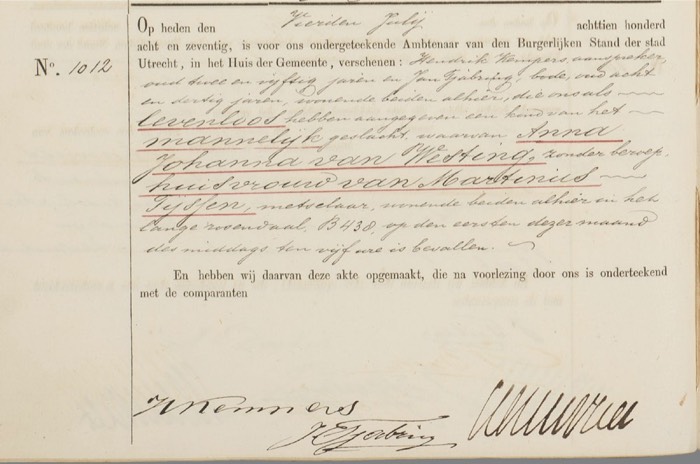 Op heden den Vierden Julij achttien honderd
acht en zeventig, is voor ons ondergeteekende Ambtenaar van den Burgerlijken Stand der stad
No. 1012 Utrecht, in het Huis der Gemeente, verschenen: Hendrik Kempers, aanspreker,
oud twee en vijftig jaren en Jan Tjabring, bode, oud acht
en dertig jaren, wonende beiden alhier, die ons als
levenloos hebben aangegeven een kind van het
mannelijk geslacht, waarvan Anna
Johanna van Westing, zonder beroep,
huisvrouw van Martinus
Tijssen, metselaar, wonende beiden alhier in het
lange rosendaal, B 438, op den eersten dezer maand
des middags ten vijf ure is bevallen.
En hebben wij daarvan deze akte opgemaakt, die na voorlezing door ons is onderteekend
met de comparanten
HKempers
JTjabring